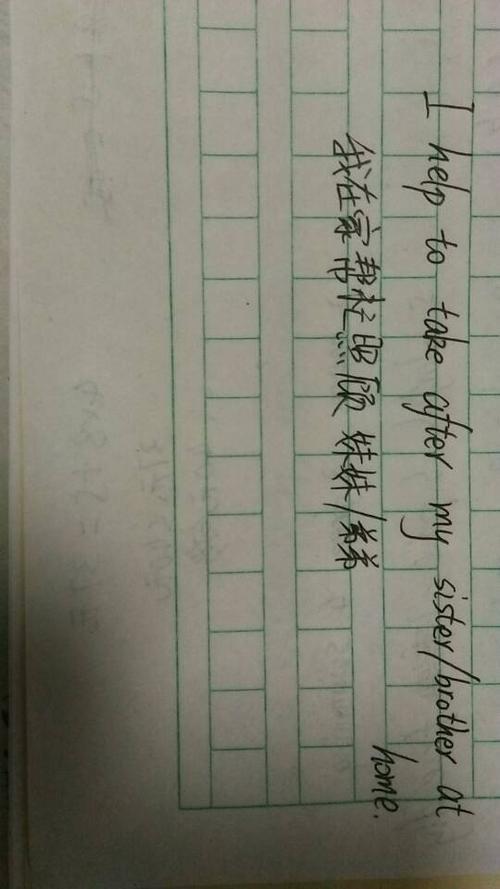 I help to take after my sister/brother at
home.
我在家帮忙照顾妹妹/弟弟